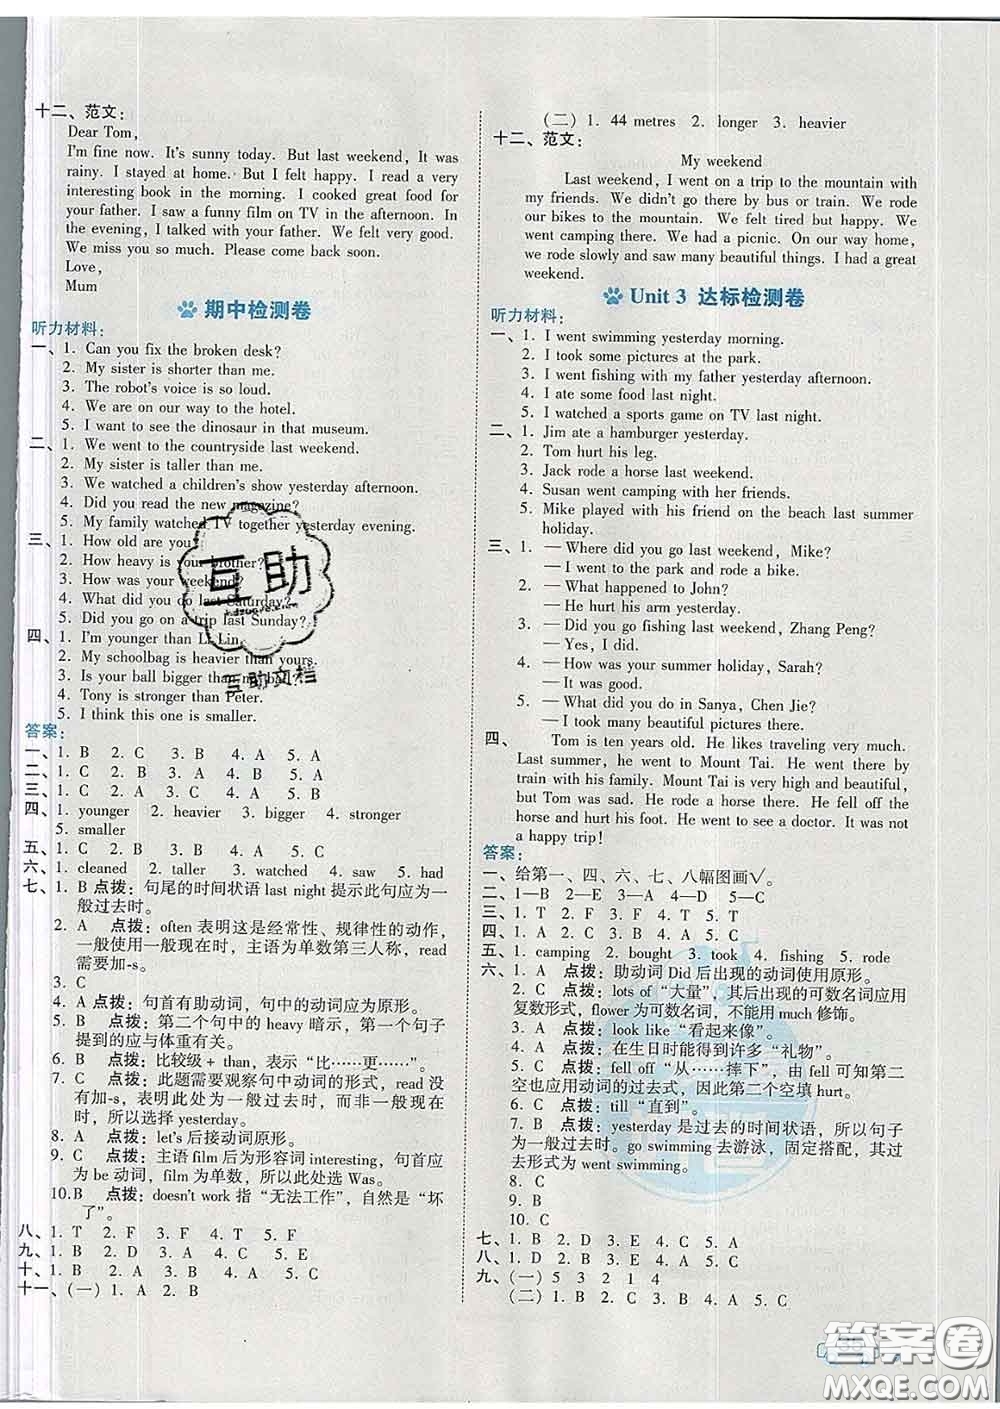 十二、范文：
Dear Tom,
I'm fine now. It's sunny today. But last weekend, It was
rainy. I stayed at home. But I felt happy. I read a very
interesting book in the morning. I cooked great food for
your father. I saw a funny film on TV in the afternoon. In
the evening, I talked with your father. We felt very good.
We miss you so much. Please come back soon.
Love,
Mum
期中检测卷
听力材料：
一、1. Can you fix the broken desk?
2. My sister is shorter than me.
3. The robot's voice is so loud.
4. We are on our way to the hotel.
5. I want to see the dinosaur in that museum.
二、1. We went to the countryside last weekend.
2. My sister is taller than me.
3. We watched a children's show yesterday afternoon.
4. Did you read the new magazine?
5. My family watched TV together yesterday evening.
三、1. How old are you?
2. How heavy is your brother?
3. How was your weekend?
4. What did you do last Saturday?
5. Did you go on a trip last Sunday?
四、1. I'm younger than Li Lin.
2. My schoolbag is heavier than yours.
3. Is your ball bigger than
4. Tony is stronger than Peter.
5. I think this one is smaller.
答案：
一、1. B 2. C 3. B 4. A 5. A
二、1. C 2. B 3. A 4. B 5. C
三、1. C 2. A 3. C 4. B 5. A
四、1. younger 2. heavier 3. bigger 4. stronger
5. smaller
五、1. C 2. B 3. A 4. B 5. C
六、1. cleaned 2. taller 3. watched 4. saw 5. had
七、1. B 点拨：句尾的时间状语 last night 提示此句应为一
般过去时。
2. A 点拨：often 表明这是经常性、规律性的动作，
一般使用一般现在时，主语为单数第三人称，read
需要加-s。
3. C
4. A 点拨：句首有助动词，句中的动词应为原形。
5. B 点拨：第二个句中的 heavy 暗示，第一个句子
提到的应与体重有关。
6. B 点拨：比较级 + than，表示“比……更……”。
7. C 点拨：此题需要观察句中动词的形式，read 没
有加-s，表明此处为一般过去时，而非一般现在
时，所以选择 yesterday。
8. A 点拨：let's 后接动词原形。
9. C 点拨：主语 film 后为形容词 interesting，句首应
为 be 动词，film 为单数，所以此处选 Was。
10. B 点拨：doesn't work 指“无法工作”，自然是“坏
了”。
八、1. T 2. F 3. F 4. T 5. F
九、1. B 2. D 3. A 4. C 5. E
十、1. B 2. C 3. A 4. B 5. C
十一、（一）1. A 2. B
（二）1. 44 metres 2. longer 3. heavier
十二、范文：
My weekend
Last weekend, I went on a trip to the mountain with
my friends. We didn't go there by bus or train. We rode
our bikes to the mountain. We felt tired but happy. We
went camping there. We had a picnic. On our way home,
we rode slowly and saw many beautiful things. I had a great
weekend.
Unit 3 达标检测卷
听力材料：
一、1. I went swimming yesterday morning.
2. I took some pictures at the park.
3. I went fishing with my father yesterday afternoon.
4. I ate some food last night.
5. I watched a sports game on TV last night.
二、1. Jim ate a hamburger yesterday.
2. Tom hurt his leg.
3. Jack rode a horse last weekend.
4. Susan went camping with her friends.
5. Mike played with his friend on the beach last summer
holiday.
三、1. — Where did you go last weekend, Mike?
— I went to the park and rode a bike.
2. — What happened to John?
— He hurt his arm yesterday.
3. — Did you go fishing last weekend, Zhang Peng?
— Yes, I did.
4. — How was your summer holiday, Sarah?
— It was good.
5. — What did you do in Sanya, Chen Jie?
— I took many beautiful pictures there.
四、 Tom is ten years old. He likes traveling very much.
Last summer, he went to Mount Tai. He went there by
train with his family. Mount Tai is very high and beautiful,
but Tom was sad. He rode a horse there. He fell off the
horse and hurt his foot. He went to see a doctor. It was not
a happy trip!
答案：
一、给第一、四、六、七、八幅图画√。
二、1—B 2—E 3—A 4—D 5—C
三、1. T 2. F 3. F 4. T 5. T
四、1. A 2. B 3. A 4. B 5. C
五、1. camping 2. bought 3. took 4. fishing 5. rode
六、1. A 点拨：助动词 Did 后出现的动词使用原形。
2. C 点拨：lots of “大量”，其后出现的可数名词应用
复数形式，flower 为可数名词，不能用 much 修饰。
3. A 点拨：look like “看起来像”。
4. A 点拨：在生日时能得到许多“礼物”。
5. C 点拨：fell off “从……摔下”，由 fell 可知第二
空也应用动词的过去式，因此第二个空填 hurt。
6. C 点拨：till “直到”。
7. B 点拨：yesterday 是过去的时间状语，所以句子
为一般过去时。go swimming 去游泳，固定搭配，其过
去形式为 went swimming。
8. C
9. B
10. C
七、1. B 2. D 3. E 4. C 5. A
八、1. D 2. B 3. E 4. A 5. C
九、（一）5 3 2 1 4
（二）1. B 2. C 3. A 4. A 5. C
互助
互助文档
答案圈
MXQE.COM